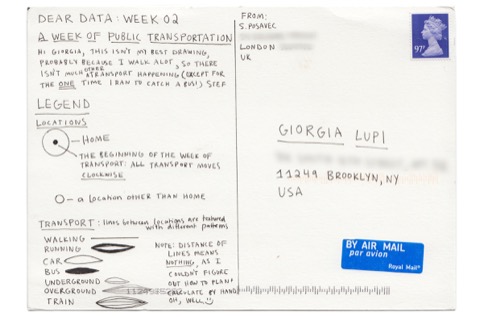 DEAR DATA: WEEK 02
A WEEK OF PUBLIC TRANSPORTATION
HI GIORGIA, THIS ISN'T MY BEST DRAWING,
PROBABLY BECAUSE I WALK ALOT, SO THERE
ISN'T MUCH OTHER TRANSPORT HAPPENING (EXCEPT FOR
THE ONE TIME I RAN TO CATCH A BUS!) STEF
LEGEND
LOCATIONS
HOME
THE BEGINNING OF THE WEEK OF
TRANSPORT: ALL TRANSPORT MOVES
CLOCKWISE
a location other than home
TRANSPORT: lines between locations are textured
with different patterns
WALKING
RUNNING
CAR
BUS
UNDERGROUND
OVERGROUND
TRAIN
NOTE: DISTANCE OF
LINES MEANS
NOTHING, AS I
COULDN'T FIGURE
OUT HOW TO PLAN/
CALCULATE BY HAND.
OH, WELL
FROM:
S. POSAVEC
LONDON
UK
97P
GIORGIA LUPI
11249 BROOKLYN, NY
USA
BY AIR MAIL
par avion
Royal Mail